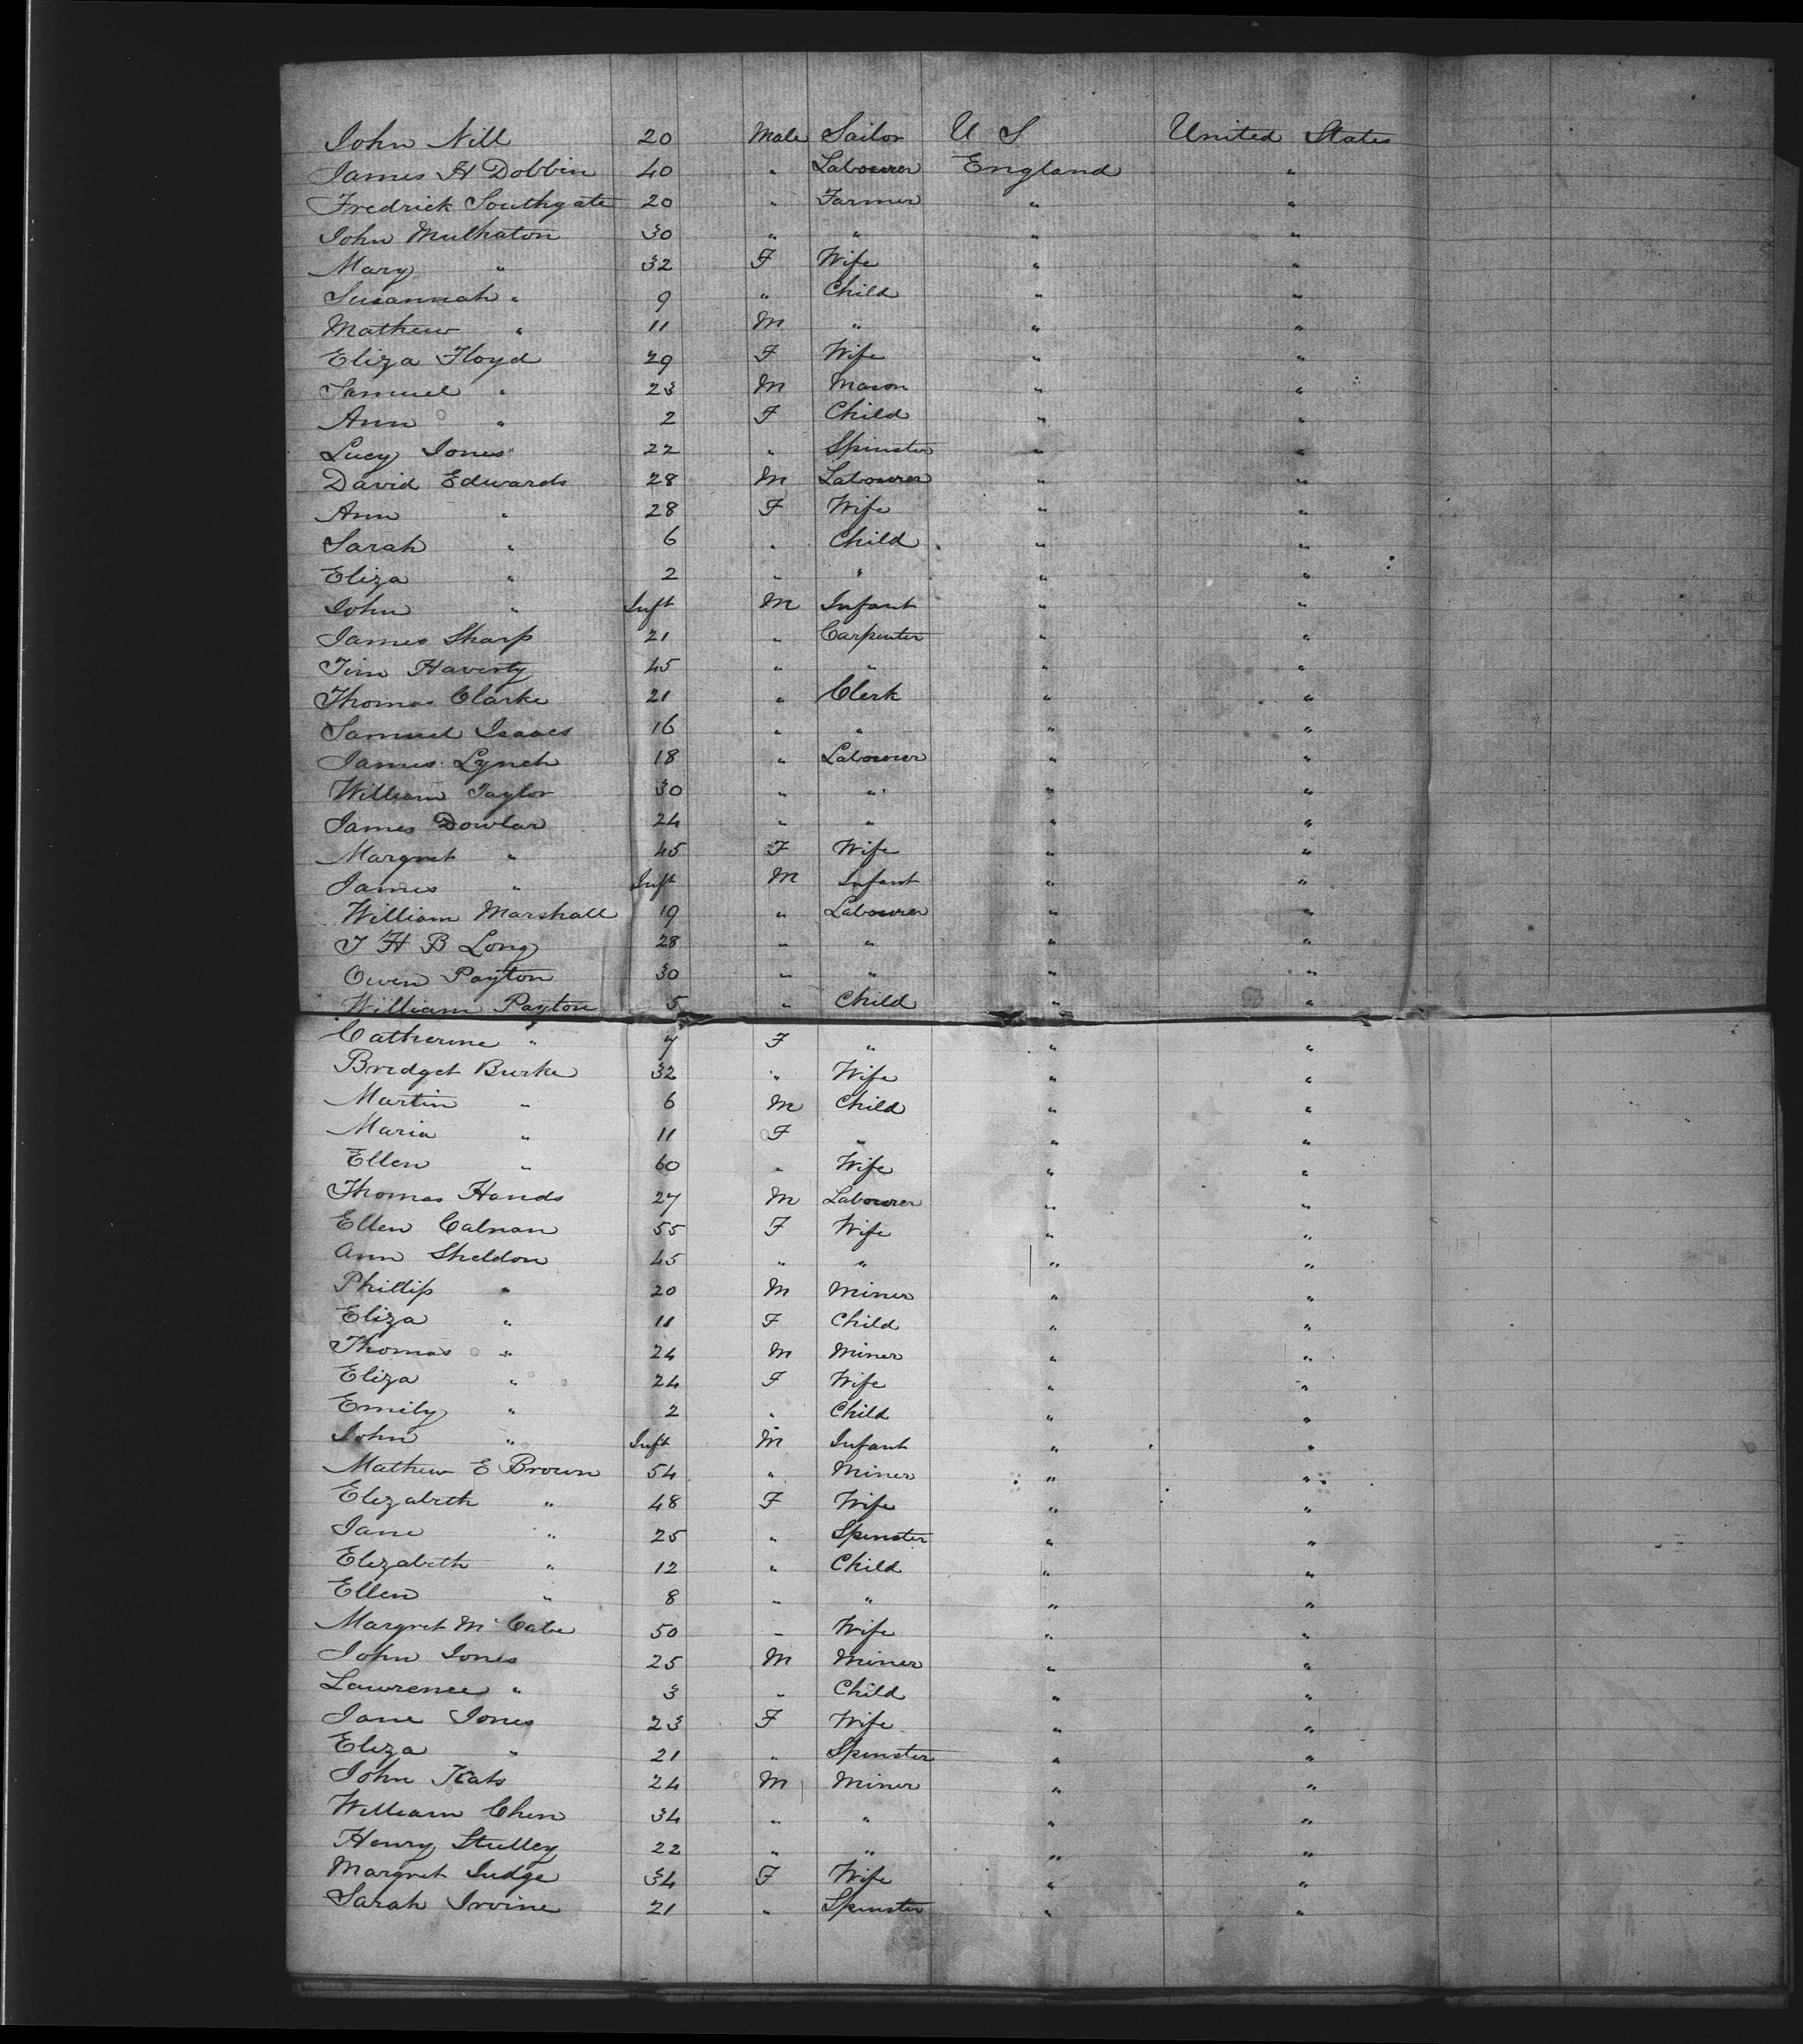 John Nill 20 Male Sailor U S United States
James H Dobbin 40 " Labourer England "
Fredrick Southgate 20 " Farmer " "
John Mulhaton 30 " " " "
Mary " 32 F Wife " "
Susannah " 9 " Child " "
Mathew " 11 M " " "
Eliza Floyd 29 F Wife " "
Samuel " 23 M Mason " "
Ann " 2 F Child " "
Lucy Jones 22 " Spinster " "
David Edwards 28 M Labourer " "
Ann " 28 F Wife " "
Sarah " 6 " Child " "
Eliza " 2 " " " "
John " Inft M Infant " "
James Sharp 21 " Carpenter " "
Tim Haverty 45 " " " "
Thomas Clarke 21 " Clerk " "
Samuel Isaacs 16 " " " "
James Lynch 18 " Labourer " "
William Taylor 30 " " " "
James Dowlar 24 " " " "
Margret " 45 F Wife " "
James " Inft M Infant " "
William Marshall 19 " Labourer " "
T H B Long 28 " " " "
Owen Payton 30 " " " "
William Payton 5 " Child " "
Catherine " 7 F " " "
Bredget Burke 32 " Wife " "
Martin " 6 M Child " "
Maria " 11 F " " "
Ellen " 60 " Wife " "
Thomas Hands 27 M Labourer " "
Ellen Calnan 55 F Wife " "
Ann Sheldon 45 " " " "
Phillip " 20 M Miner " "
Eliza " 11 F Child " "
Thomas " 24 M Miner " "
Eliza " 24 F Wife " "
Emily " 2 " Child " "
John " Inft M Infant " "
Mathew E Brown 54 " Miner " "
Elizabeth " 48 F Wife " "
Jane " 25 " Spinster " "
Elizabeth " 12 " Child " "
Ellen " 8 " " " "
Margret McCabe 50 " Wife " "
John Jones 25 M Miner " "
Lawrence " 3 " Child " "
Jane Jones 23 F Wife " "
Eliza " 21 " Spinster " "
John 24 M Miner " "
William Chen 34 " " " "
Henry Stulley 22 " " " "
Margret Judge 34 F Wife " "
Sarah Irvine 21 " Spinster " "